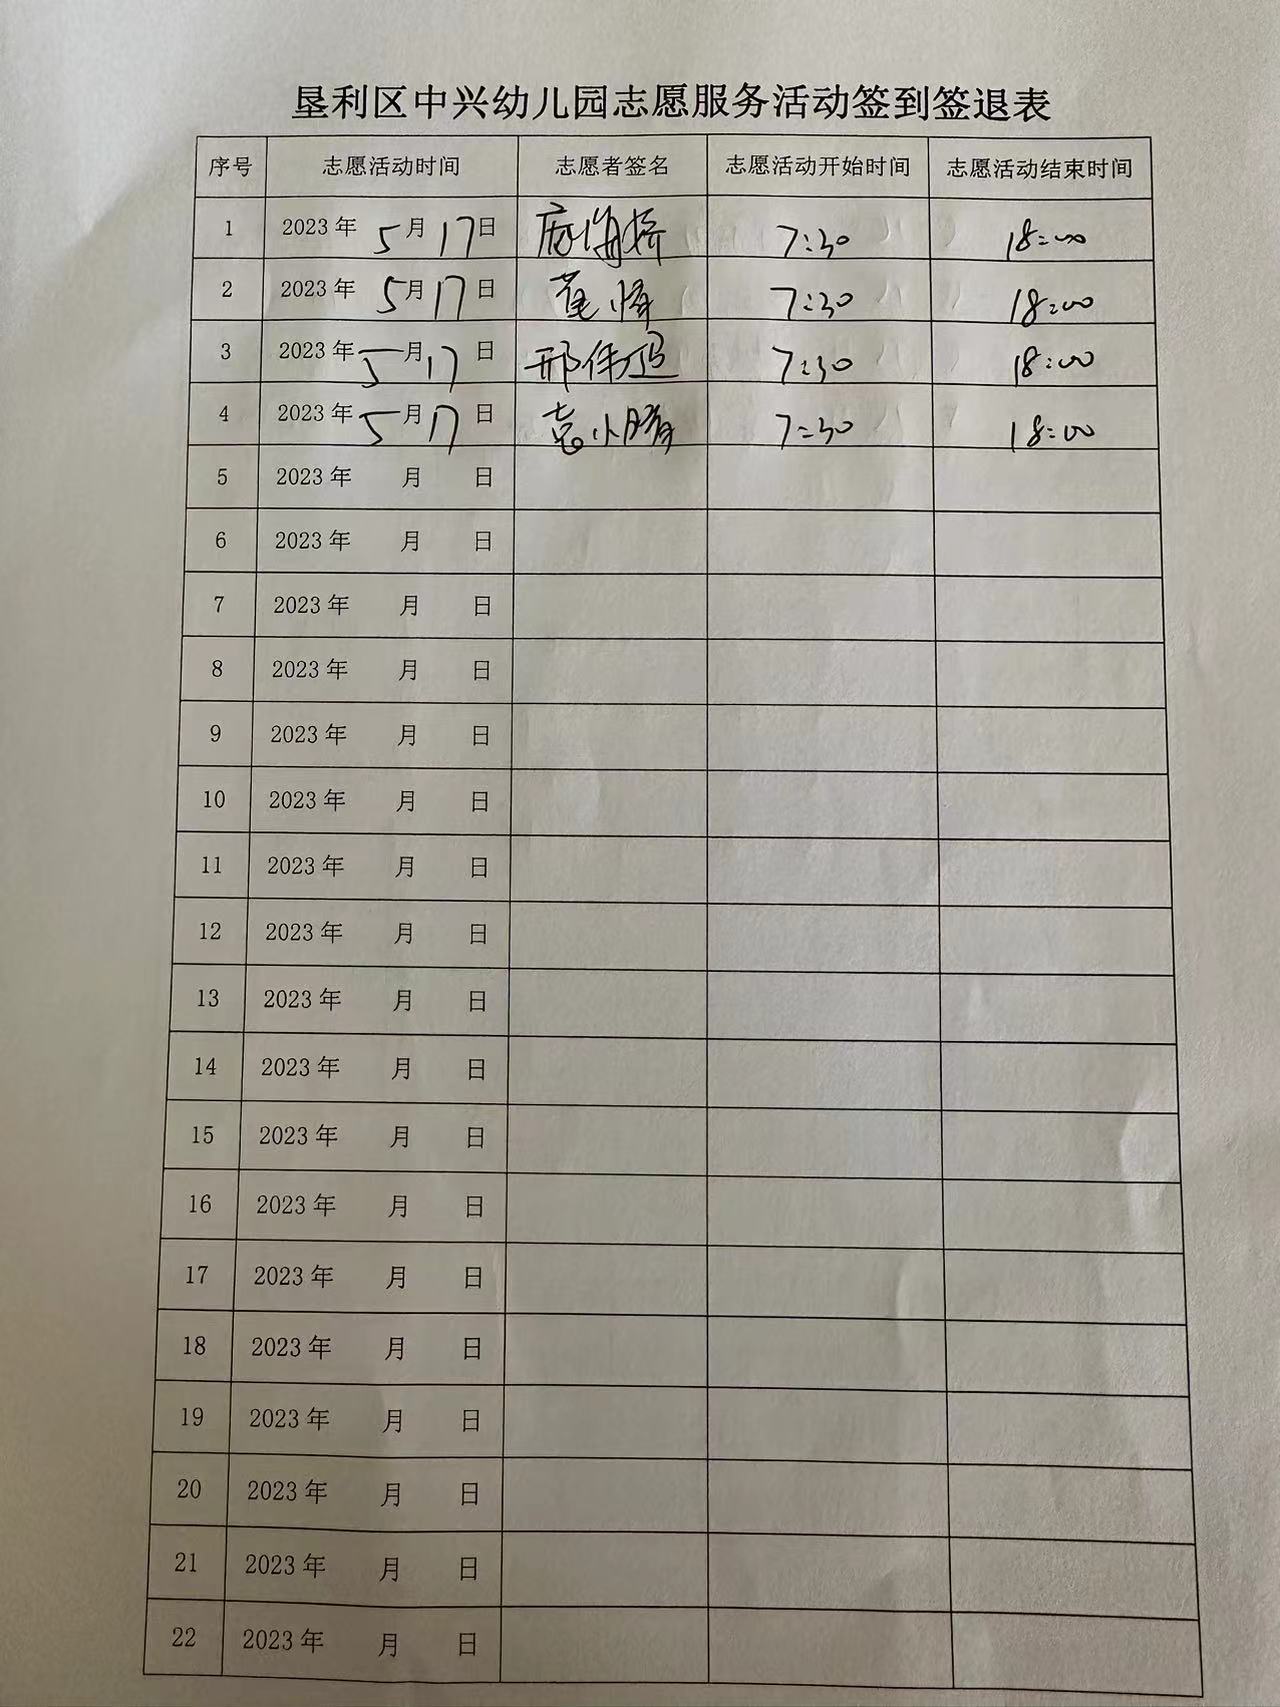 垦利区中兴幼儿园志愿服务活动签到签退表
序号 志愿活动时间 志愿者签名 志愿活动开始时间 志愿活动结束时间
1 2023年 5月17日 7:30 18:00
2 2023年 5月17日 7:30 18:00
3 2023年 5月17日 邢伟 7:30 18:00
4 2023年 5月17日 袁小 7:30 18:00
5 2023年 月 日
6 2023年 月 日
7 2023年 月 日
8 2023年 月 日
9 2023年 月 日
10 2023年 月 日
11 2023年 月 日
12 2023年 月 日
13 2023年 月 日
14 2023年 月 日
15 2023年 月 日
16 2023年 月 日
17 2023年 月 日
18 2023年 月 日
19 2023年 月 日
20 2023年 月 日
21 2023年 月 日
22 2023年 月 日